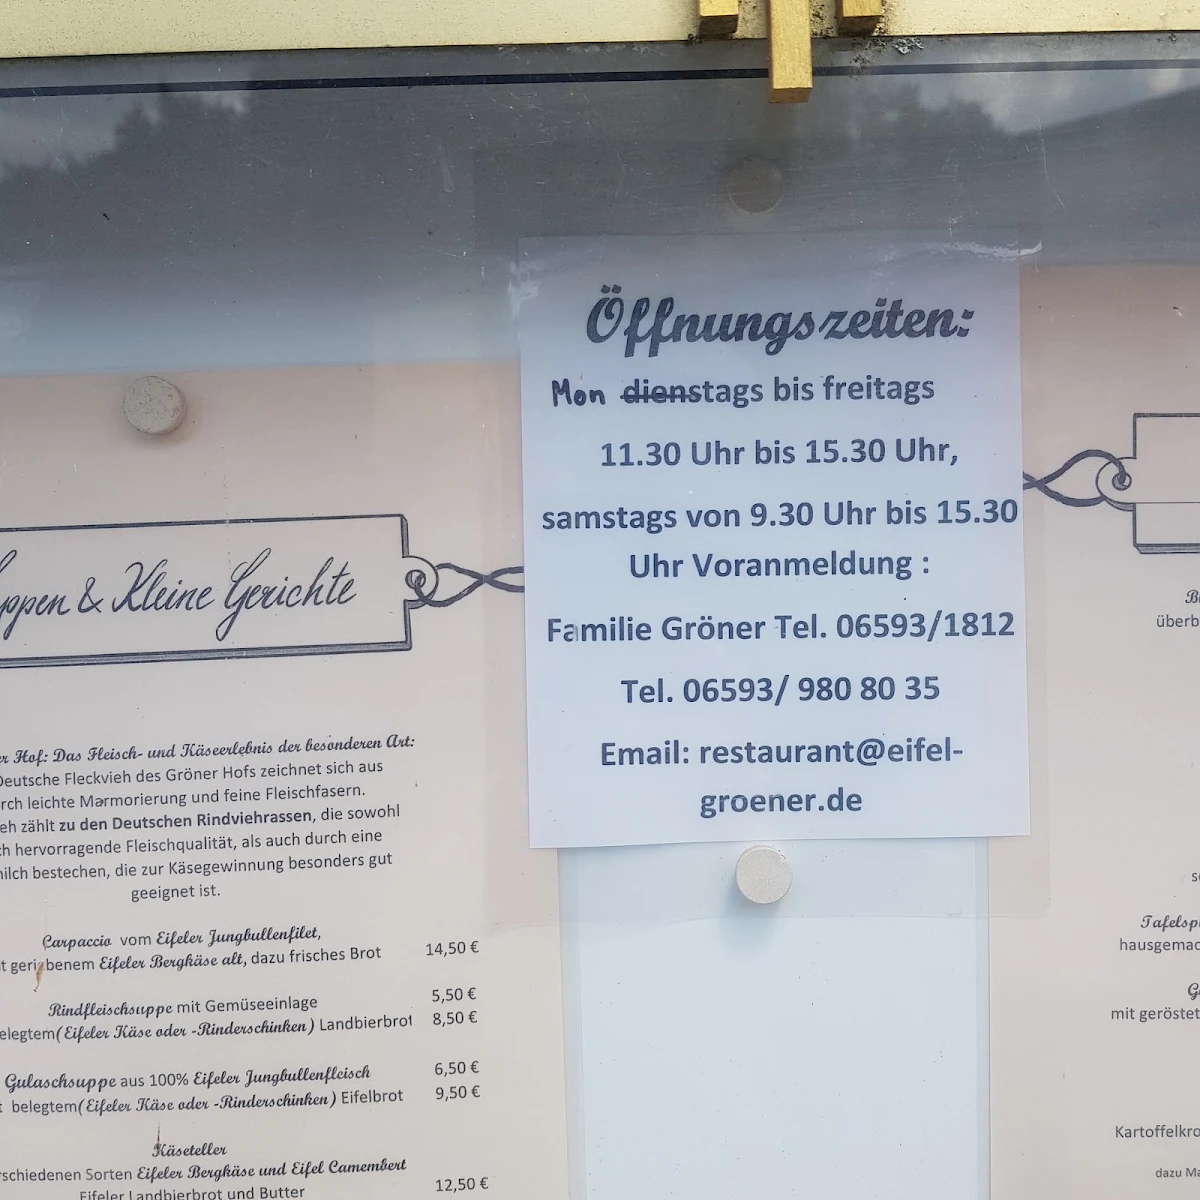 Öffnungszeiten:
Mon dienstags bis freitags
11.30 Uhr bis 15.30 Uhr,
samstags von 9.30 Uhr bis 15.30
Uhr Voranmeldung :
Familie Gröner Tel. 06593/1812
Tel. 06593/ 980 80 35
Email: restaurant@eifel-
groener.de
ppen & Kleine Gerichte
er Hof: Das Fleisch- und Käseerlebnis der besonderen Art:
Deutsche Fleckvieh des Gröner Hofs zeichnet sich aus
rch leichte Marmorierung und feine Fleischfasern.
eh zählt zu den Deutschen Rindviehrassen, die sowohl
ch hervorragende Fleischqualität, als auch durch eine
milch bestechen, die zur Käsegewinnung besonders gut
geeignet ist.
Carpaccio vom Eifeler Jungbullenfilet,
t geriebenem Eifeler Bergkäse alt, dazu frisches Brot 14,50 €
Rindfleischsuppe mit Gemüseeinlage 5,50 €
elegtem(Eifeler Käse oder -Rinderschinken) Landbierbrot 8,50 €
Gulaschsuppe aus 100% Eifeler Jungbullenfleisch 6,50 €
t belegtem(Eifeler Käse oder -Rinderschinken) Eifelbrot 9,50 €
Käseteller
rschiedenen Sorten Eifeler Bergkäse und Eifel Camembert
Eifeler Landbierbrot und Butter 12,50 €
überb
Tafelsp
hausgemac
mit geröstet
Kartoffelkro
dazu Ma